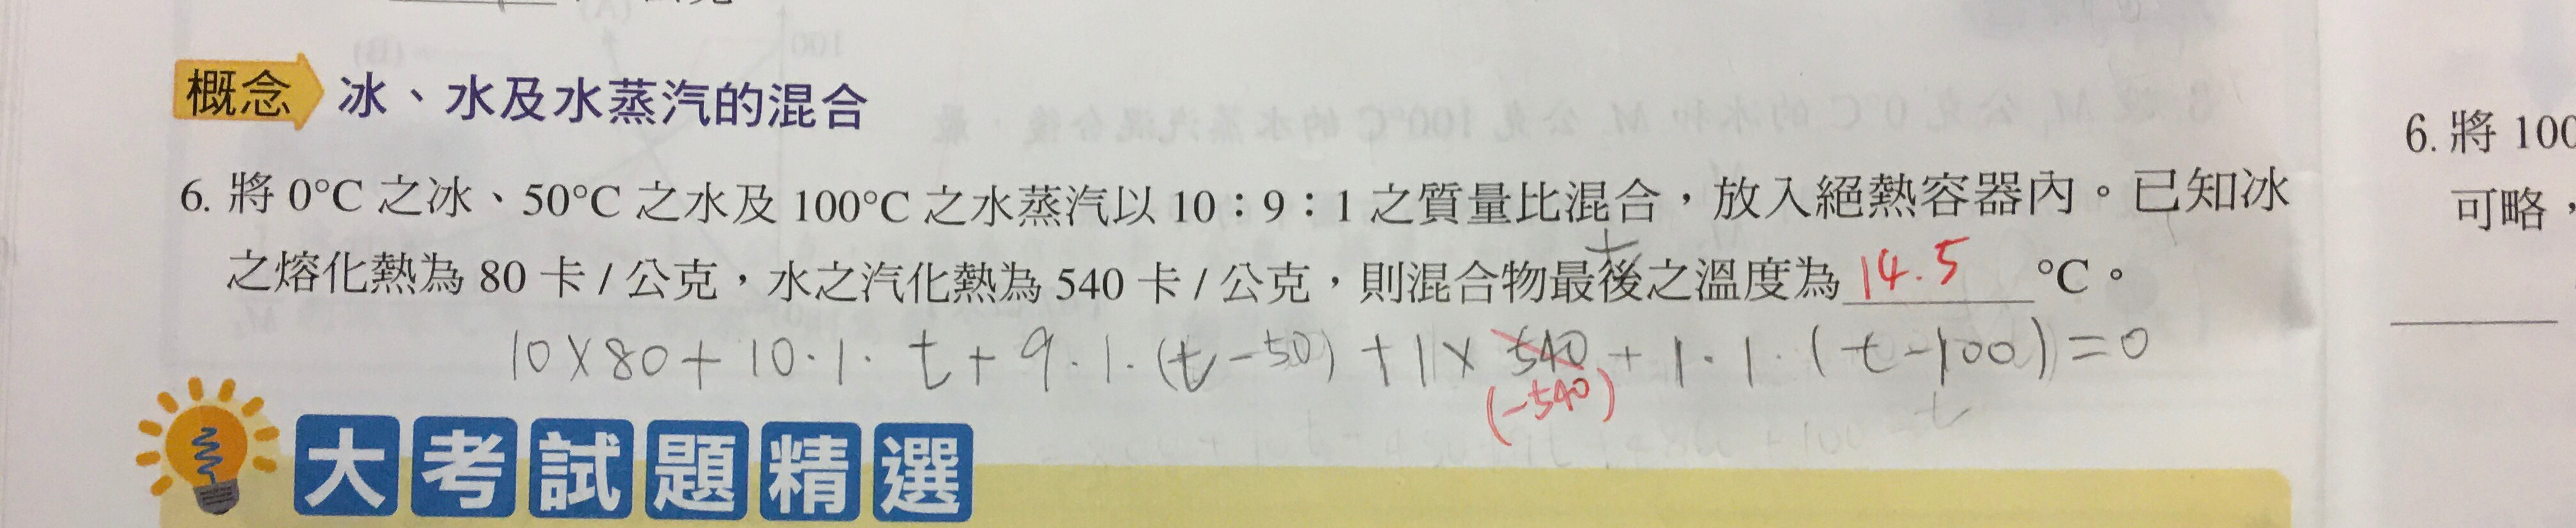 概念 冰、水及水蒸汽的混合
6. 將 0°C 之冰、50°C 之水及 100°C 之水蒸汽以 10：9：1 之質量比混合，放入絕熱容器內。已知冰
之熔化熱為 80 卡 / 公克，水之汽化熱為 540 卡 / 公克，則混合物最後之溫度為 14.5 °C。
t
10×80+10·1·t+9·1·(t-50)+1×540+1·1·(t-100)=0
(-540)
t
大考試題精選
6. 將 100
可略，